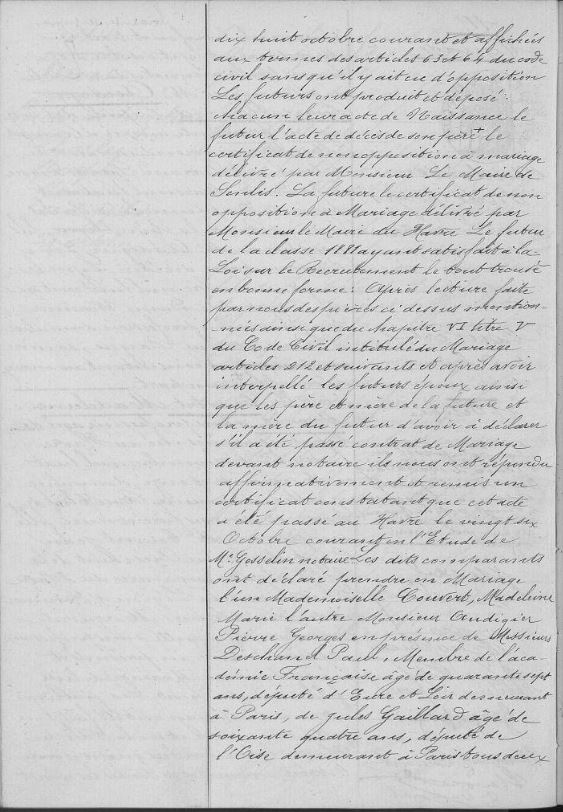 dix huit octobre courant et affichées
aux termes des articles 63 et 64 du code
civil sans qu'il y ait eu d'opposition
Les futurs ont produit et déposé :
chacun leur acte de Naissance le
futur l'acte de décès de son père + le
certificat de non opposition à mariage
délivré par Monsieur Le Maire de
Senlis. La future le certificat de non
opposition à Mariage délivré par
Monsieur le Maire du Havre Le futur
de la classe 1881 ayant satisfait à la
Loi sur le Recrutement le tout trouvé
en bonne forme : Après lecture faite
par nous des pièces ci dessus mention-
nées ainsi que du chapitre VI titre V
du Code Civil intitulé du Mariage
articles 212 et suivants et après avoir
interpellé les futurs époux ainsi
que les père et mère de la future et
la mère du futur d'avoir à déclarer
s'il a été passé contrat de Mariage
devant notaire ils nous ont répondu
affirmativement et remis un
certificat constatant que cet acte
a été passé au Havre le vingt six
Octobre courant en l'Etude de
Me Gosselin notaire Les dits comparants
ont déclaré prendre en Mariage
l'un Mademoiselle Couvert, Madeleine
Marie l'autre Monsieur Audigier
Pierre Georges en présence de Messieurs
Deschanel Paul, Membre de l'aca-
démie Française âgé de quarante sept
ans, député d'Eure et Loir demeurant
à Paris, de Jules Gaillard âgé de
soixante quatre ans, député de
l'Oise demeurant à Paris tous deux